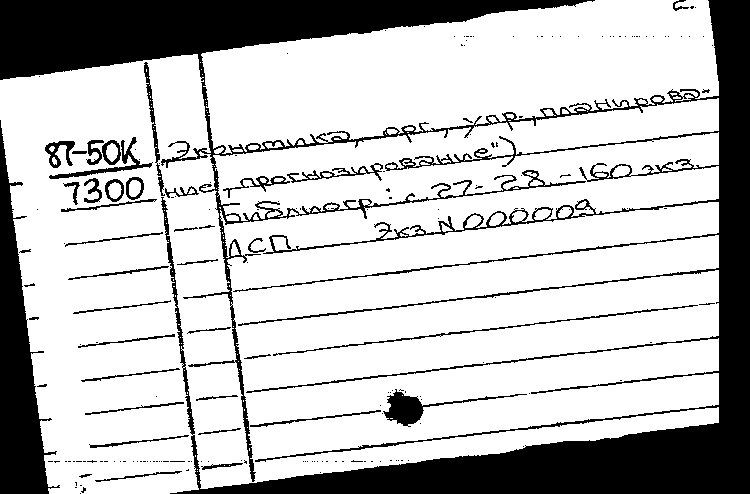 2.
87-50К „Экономика, орг., упр., планирова-
7300 ние, прогнозирование").
Библиогр.: с. 27-28. - 160 экз.
ДСП. Экз N 000009.